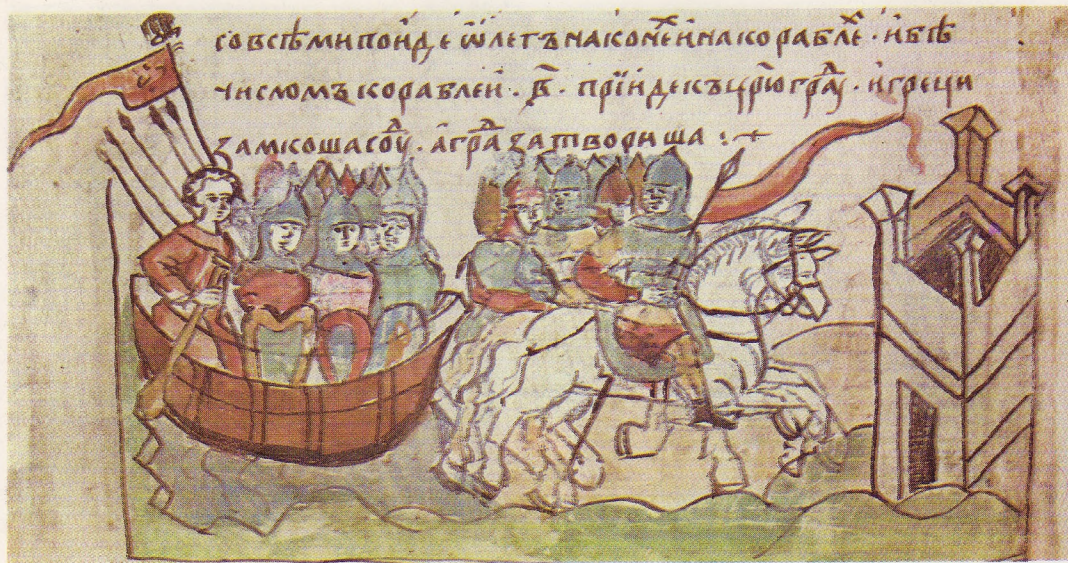 совсѣмипоиде ѡлегъ наконеⷯинакораблеⷯ · ибѣ
числомъкораблеи · в҃ · прїидекъцр҃югра · игреци
замкошасоуⷣ · аграⷣзатвориша :·+